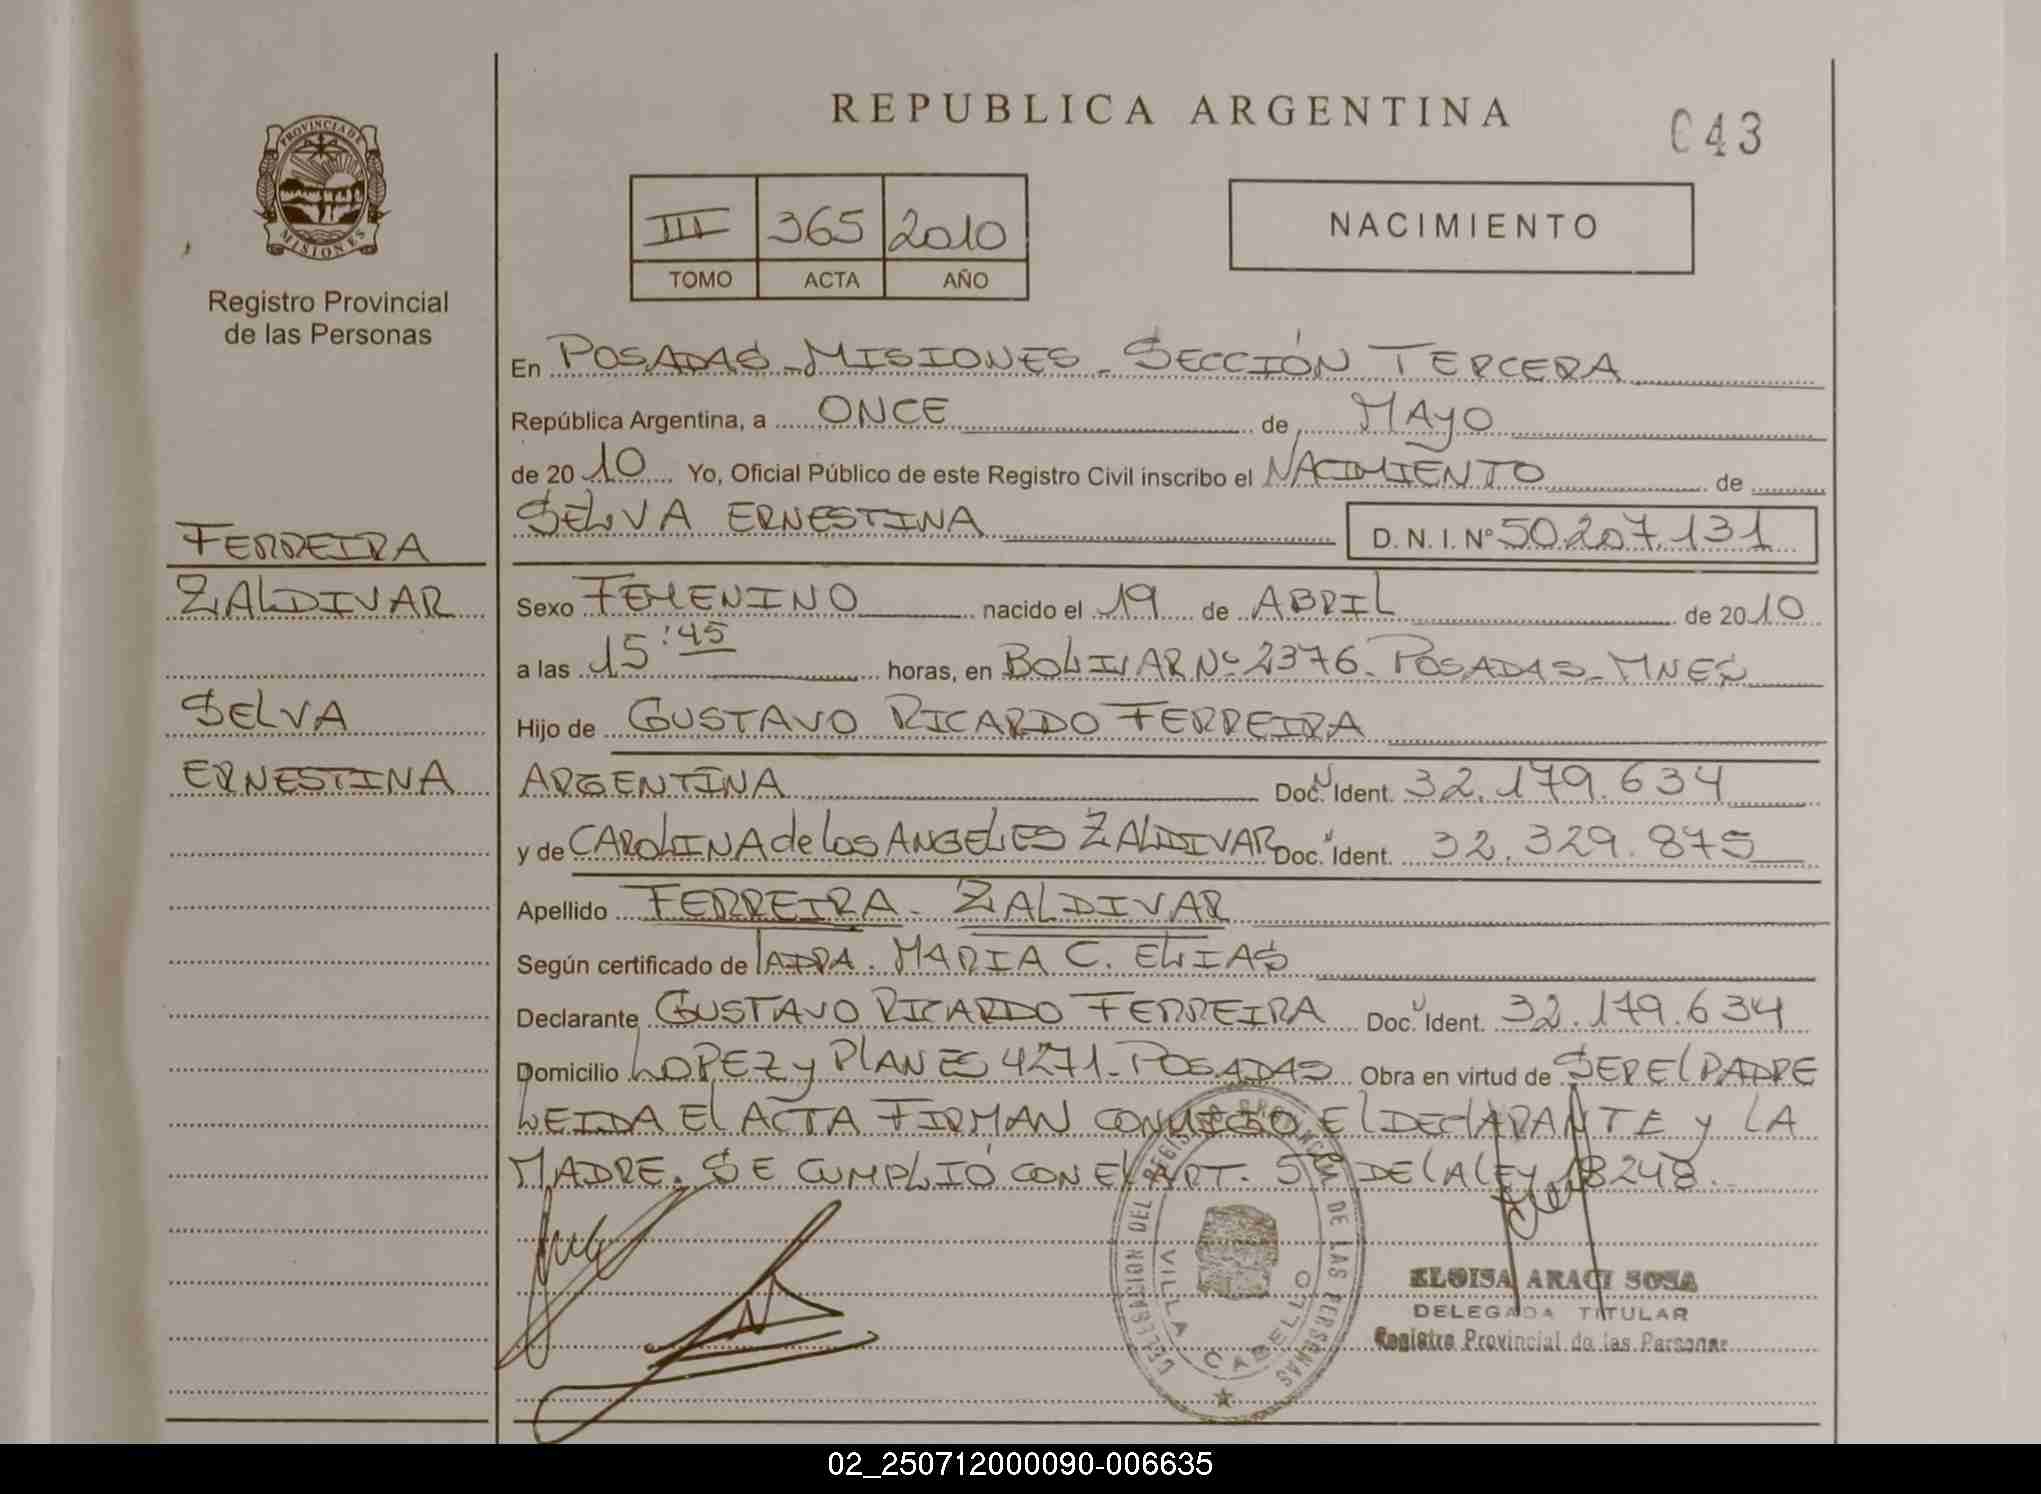 REPUBLICA ARGENTINA
043
PROVINCIA DE
MISIONES
Registro Provincial
de las Personas
III 365 2010
TOMO ACTA AÑO
NACIMIENTO
En POSADAS - MISIONES - SECCIÓN TERCERA
República Argentina, a ONCE de MAYO
de 2010 Yo, Oficial Público de este Registro Civil inscribo el NACIMIENTO de
SELVA ERNESTINA D. N. I. Nº 50.207.131
FERREIRA
ZALDIVAR
SELVA
ERNESTINA
Sexo FEMENINO nacido el 19 de ABRIL de 2010
a las 15:45 horas, en BOLIVAR Nº 2376. POSADAS - MNES
Hijo de GUSTAVO RICARDO FERREIRA
ARGENTINA Doc. Ident. 32.179.634
y de CAROLINA de los ANGELES ZALDIVAR Doc. Ident. 32.329.875
Apellido FERREIRA - ZALDIVAR
Según certificado de MARIA C. ELIAS
Declarante GUSTAVO RICARDO FERREIRA Doc. Ident. 32.179.634
Domicilio LOPEZ y PLANES 4271 - POSADAS Obra en virtud de SER El PADRE
LEIDA El ACTA FIRMAN CONMIGO El DEClARANTE y LA
MADRE. SE CUMPLIÓ CON El ART. 5º DE lA lEy 18248.
DELEGACION DEL REGISTRO PROVINCIAL DE LAS PERSONAS
VILLA CABELLO
ELOISA ARACI SOSA
DELEGADA TITULAR
Registro Provincial de las Personas
02_250712000090-006635